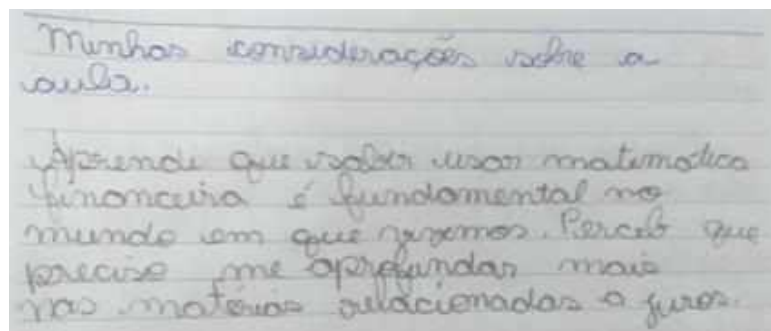 Minhas considerações sobre a
aula.
Aprende que saber usar matematica
financeira é fundamental no
mundo em que vivemos. Percebi que
preciso me aprofundar mais
nas matérias relacionadas a juros.